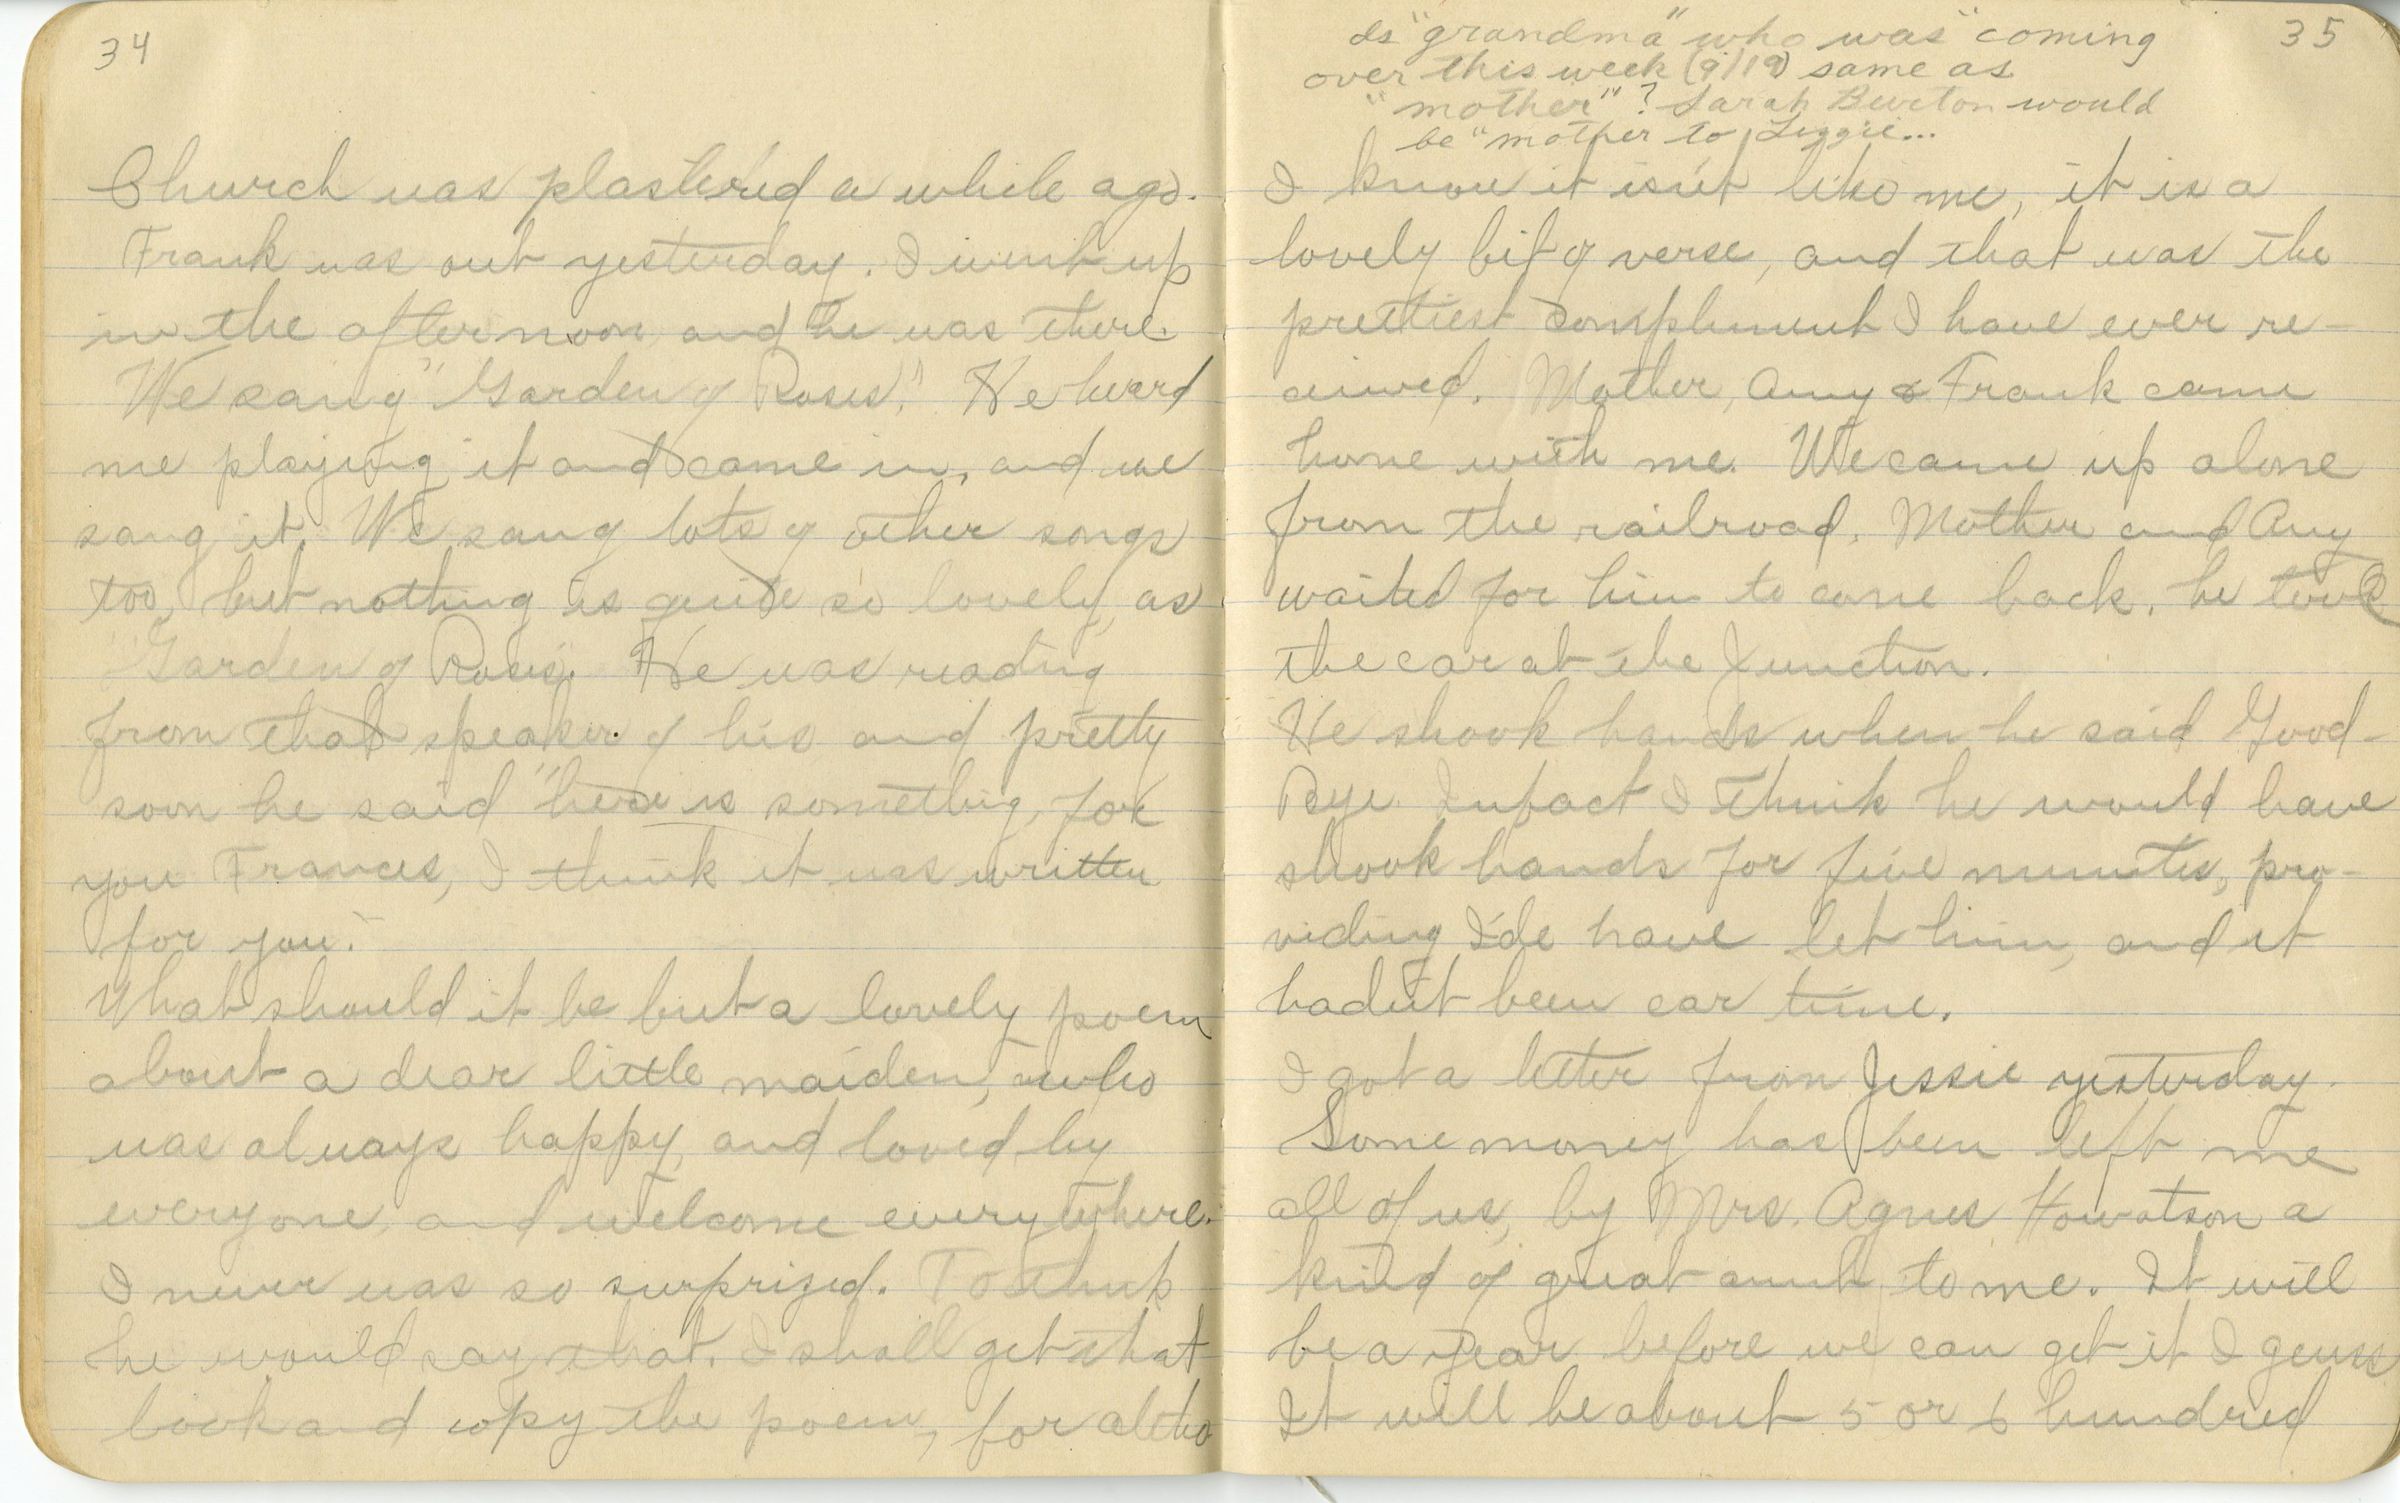 34
Church was plastered a while ago.
Frank was out yesterday. I went up
in the afternoon and he was there.
We sang "Garden of Roses". He heard
me playing it and came in, and we
sang it. We sang lots of other songs
too, but nothing is quite so lovely as
"Garden of Roses". He was reading
from that speaker of his and pretty
soon he said "here is something for
you Frances, I think it was written
for you."
What should it be but a lovely poem
about a dear little maiden, who
was always happy and loved by
everyone, and welcome everywhere.
I never was so surprized. To think
he would say that. I shall get that
book and copy the poem, for altho
35
Is "grandma" who was "coming
over this week (9/19) same as
"mother"? Sarah Burton would
be "mother to Lizzie...
I know it isn't like me, it is a
lovely bit of verse, and that was the
prettiest compliment I have ever re-
ceived. Mother, Amy & Frank came
home with me. We came up alone
from the railroad. Mother and Amy
waited for him to come back. he took
the car at the Junction.
He shook hands when he said Good-
Bye. Infact I think he would have
shook hands for five minutes, pro-
viding I'de have let him, and it
hadn't been car time.
I got a letter from Jessie yesterday.
Some money has been left me
all of us, by Mrs. Agnes Howatson a
kind of great aunt to me. It will
be a year before we can get it I guess
It will be about 5 or 6 hundred